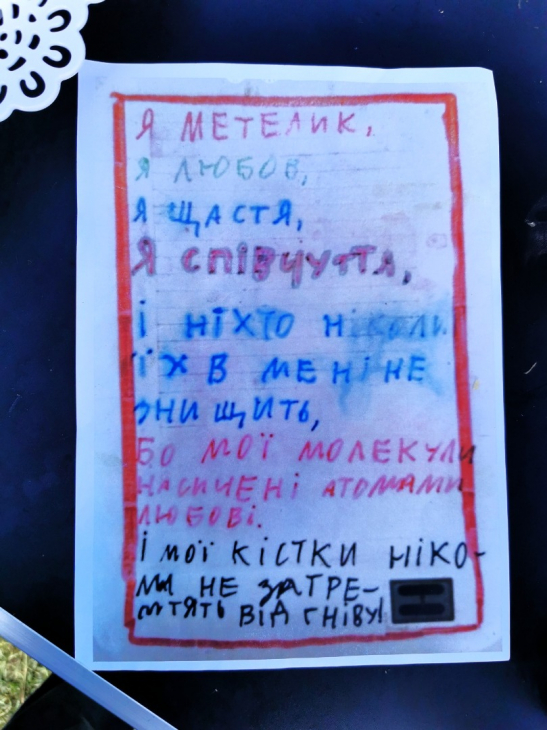 Я МЕТЕЛИК,
Я ЛЮБОВ,
Я ЩАСТЯ,
Я СПІВЧУТТЯ,
І НІХТО НІКОЛИ
ЇХ В МЕНІ НЕ
ЗНИЩИТЬ,
БО МОЇ МОЛЕКУЛИ
НАСИЧЕНІ АТОМАМИ
ЛЮБОВІ.
І МОЇ КІСТКИ НІКО-
ЛИ НЕ ЗАТРЕ-
МТЯТЬ ВІД ГНІВУ!